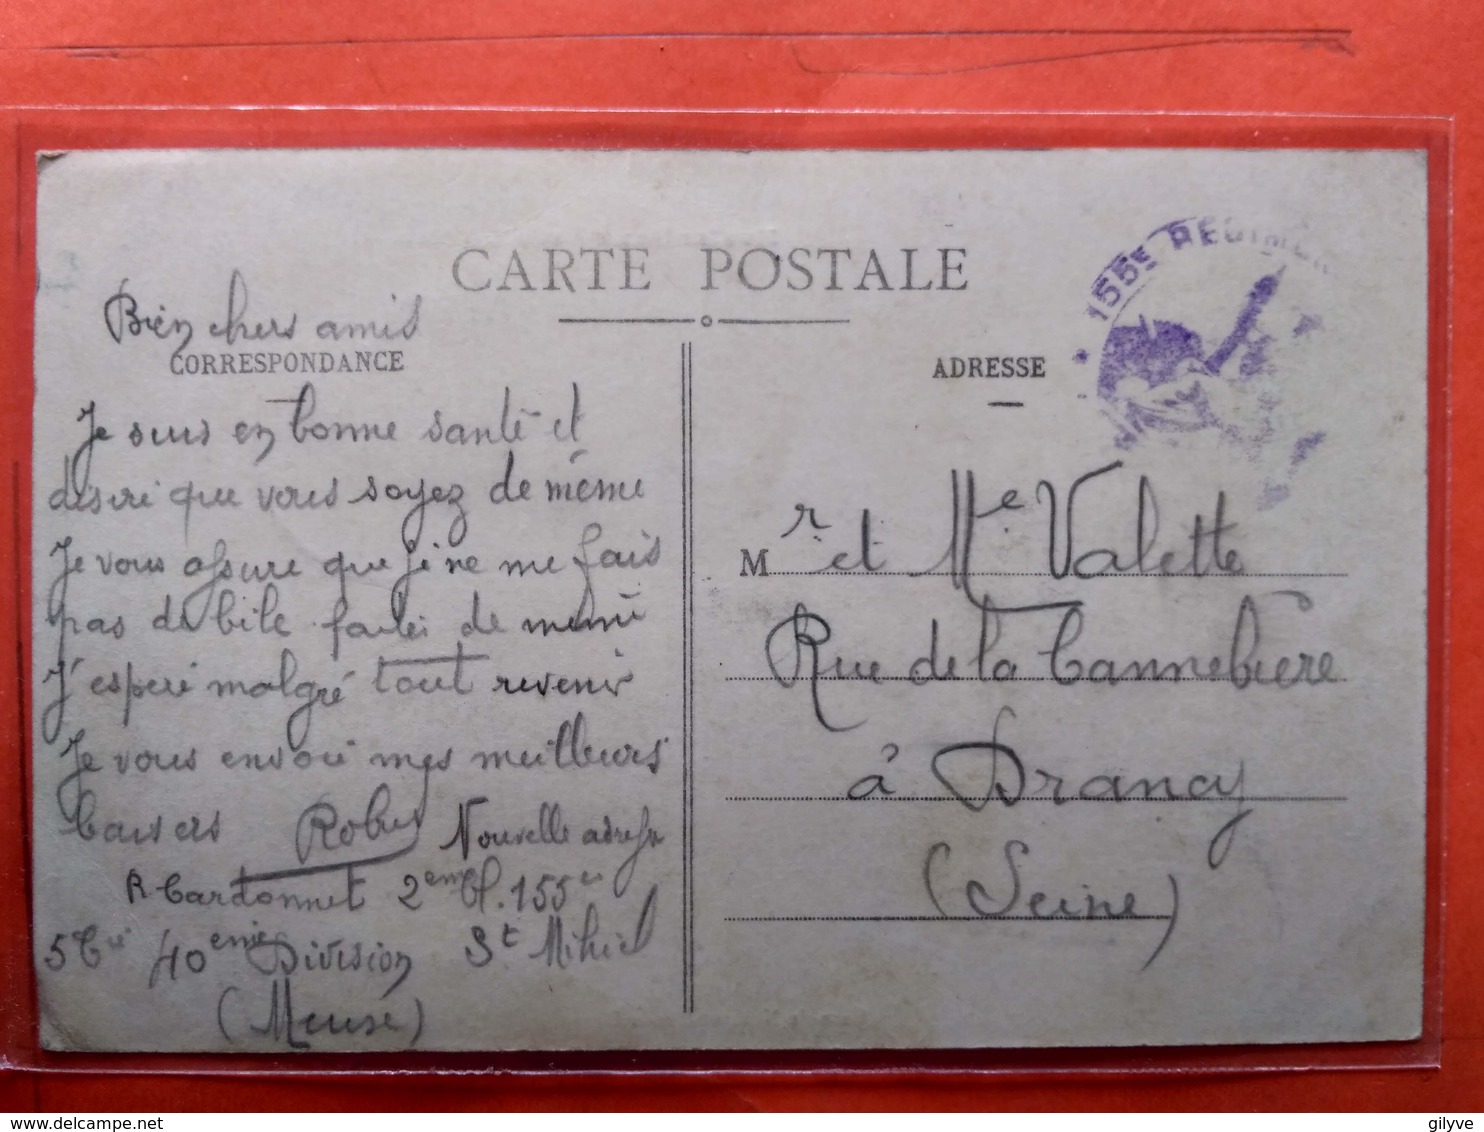 CARTE POSTALE
155E REGIMEN
Bien chers amis
CORRESPONDANCE
Je suis en bonne santé et
désire que vous soyez de même
Je vous assure que je ne me fais
pas de bile faites de même
J'espère malgré tout revenir
Je vous envoie mes meilleurs
baisers Robert Nouvelle adresse
R Cardonnet 2eme Cl. 155e
5 Cie 40eme Division St Mihiel
(Meuse)
ADRESSE
Mr et Me Valette
Rue de la Cannebiere
à Drancy
(Seine)
gilyve